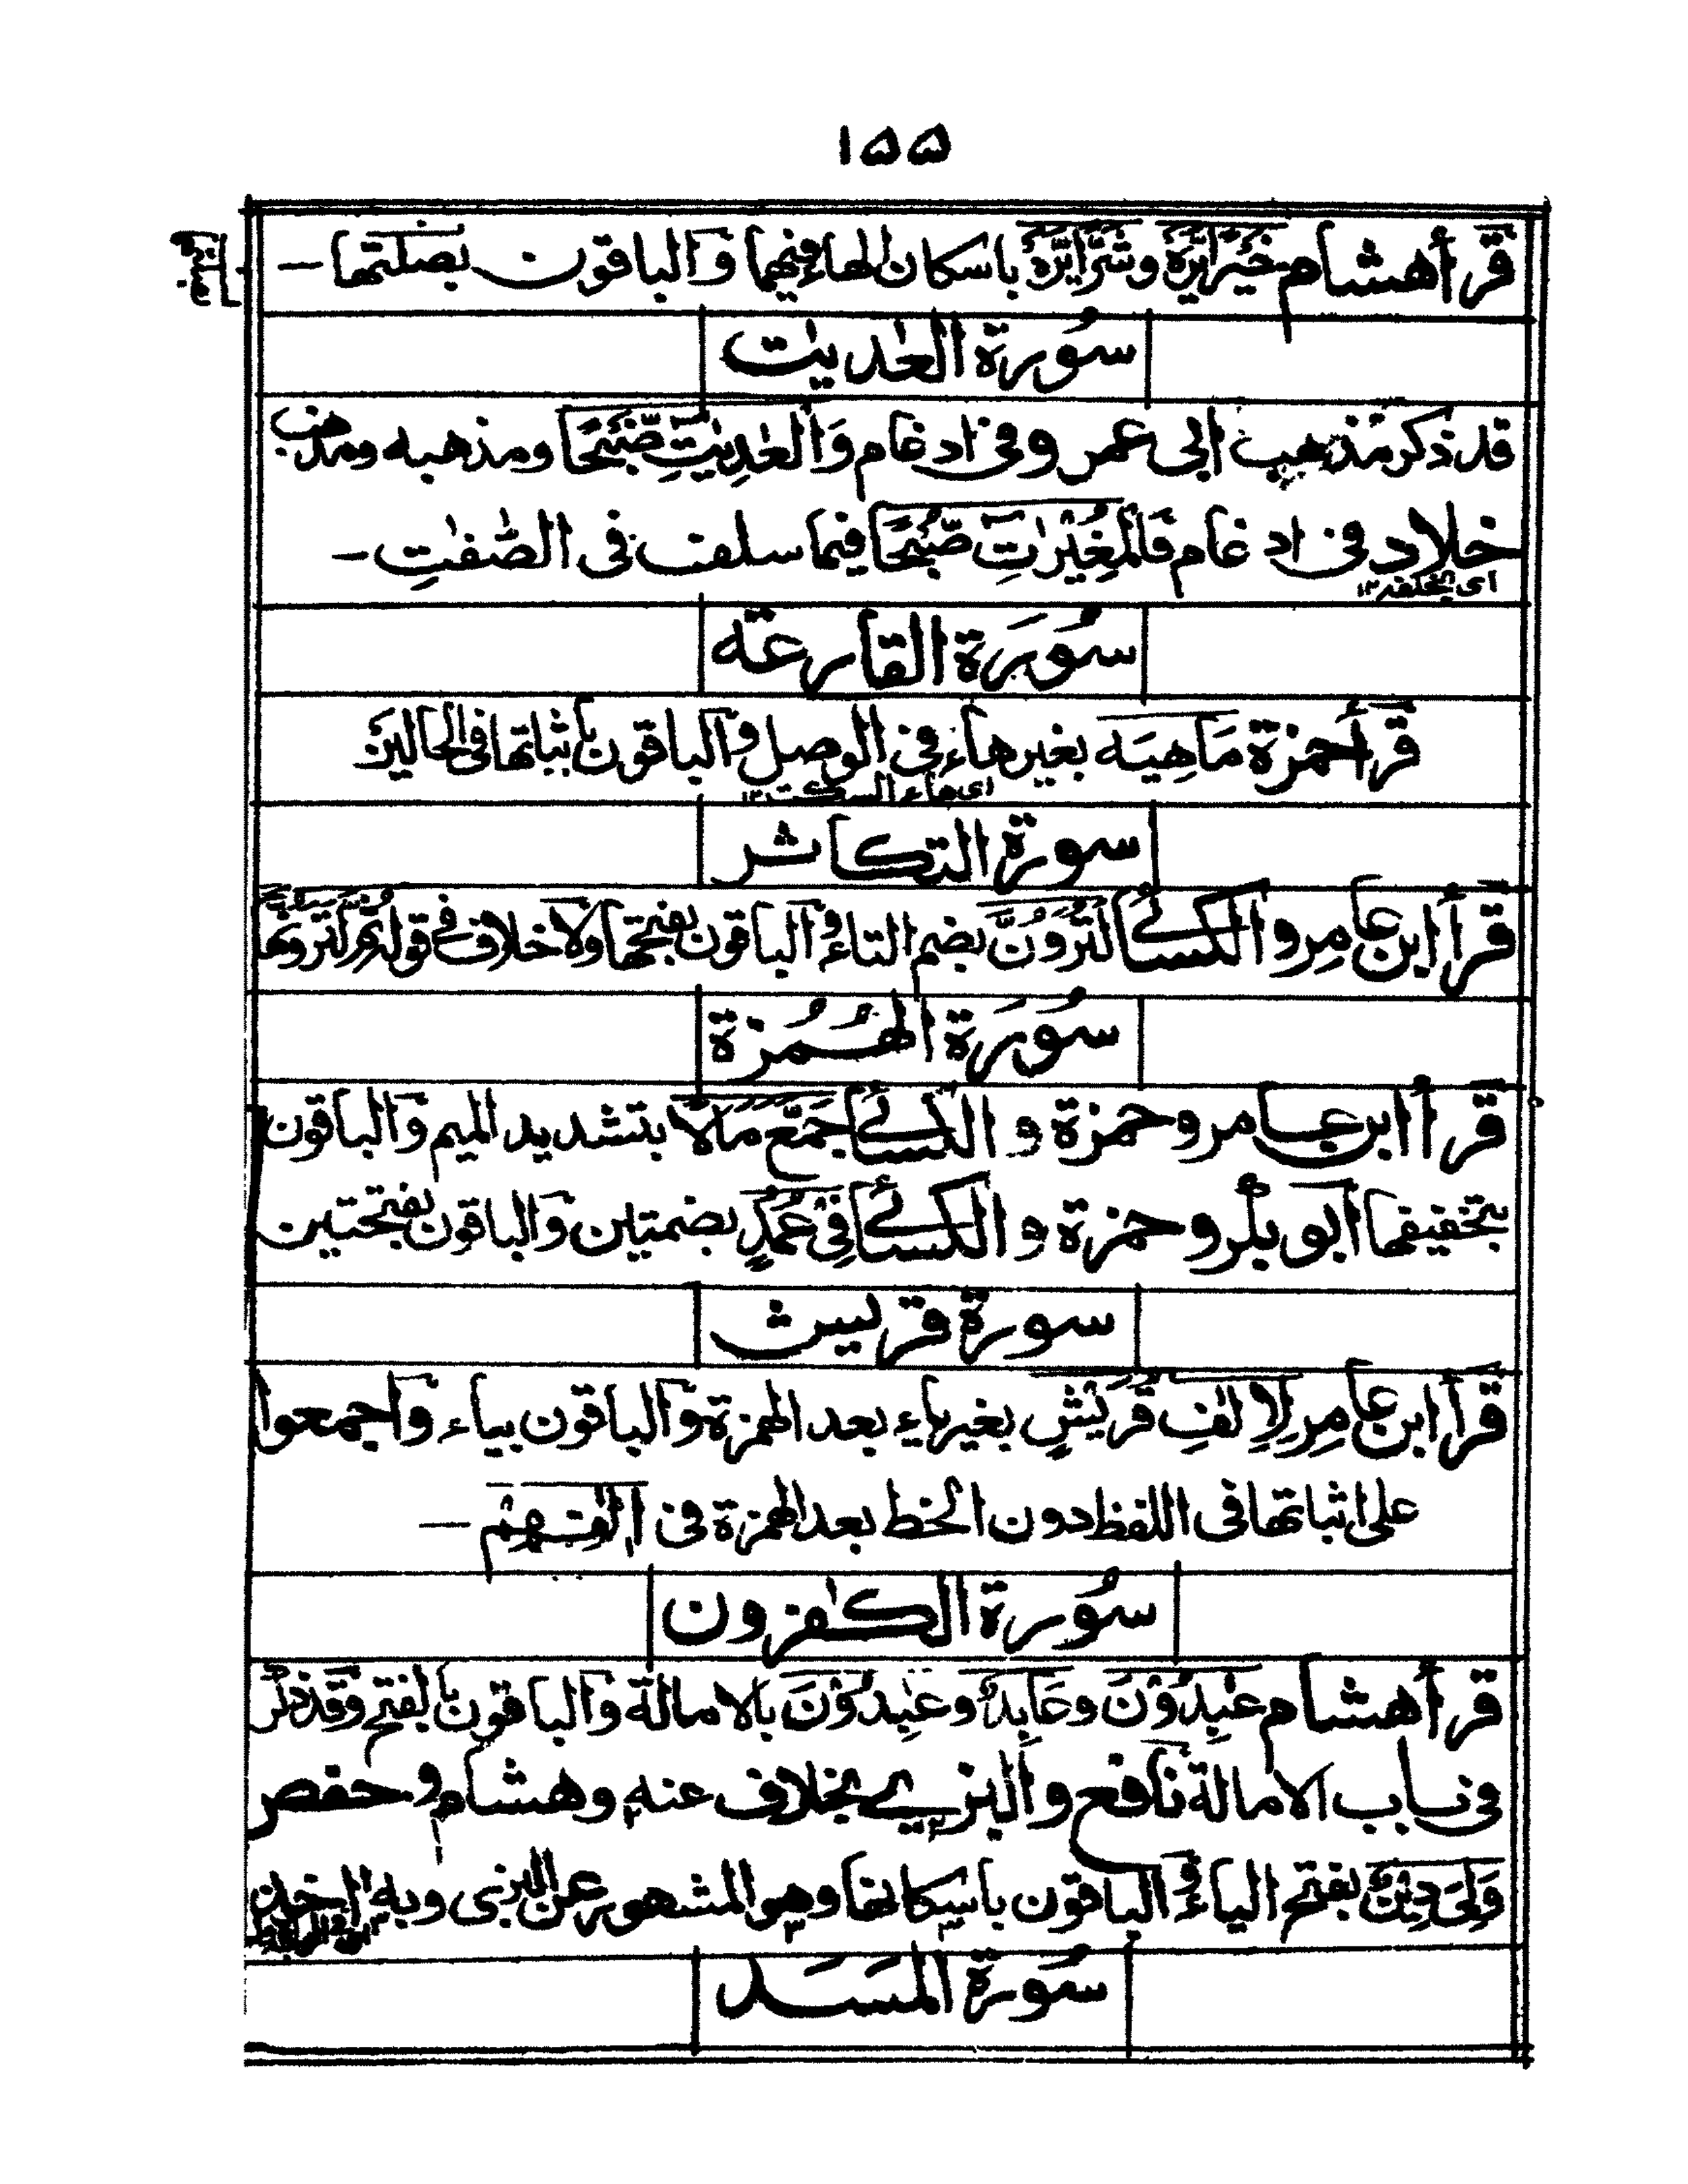 ١٥٥
قرأ هشام خَيْرًا يَّرَهْ وشَرًّا يَّرَهْ باسكان الهاء فيهما والباقون بصلتها —
سُورة العٰديٰت
قد ذكر مذهب ابى عمر وفى ادغام وَالْعٰدِيٰتِ ضَّبْحًا ومذهبه ومذهب
خلاد فى ادغام فَالْمُغِيْرٰتِ صُّبْحًا فيما سلف فى الصّٰفٰتِ —
اى بخلفه ١٢
سُورَة القارعة
قرأ حمزة مَاهِيَه بغير هاء فى الوصل والباقون باثباتها فى الحالين
اى هاء السكت ١٢
سورة التكاثر
قرأ ابن عامر والكسائى لَتُرَوُنَّ بضم التاء والباقون بفتحها ولا خلاف فى قوله ثم لترونها
سُورَة الهُمُزة
قرأ ابن عامر وحمزة و الكسائى جَمَّعَ مالًا بتشديد الميم والباقون
بتخفيفها ابو بكر وحمزة و الكسائى فِىْ عُمُدٍ بضمتين والباقون بفتحتين
سورة قريش
قرأ ابن عامر لِاِلٰفِ قُرَيْشٍ بغير ياء بعد الهمزة والباقون بياء واجمعوا
على اثباتها فى اللفظ دون الخط بعد الهمزة فى اٖلٰفِهِمْ —
سُورة الكٰفرون
قرأ هشام عٰبِدُوْنَ وعَابِدٌ وعٰبِدُوْنَ بالامالة والباقون بالفتح وقد ذكر
فى باب الامالة نافع والبزى بخلاف عنه وهشام وحفص
وَلِىَ دِيْنِ بفتح الياء والباقون باسكانها وهو المشهور عن البزى وبه اخذ
سُورة المَسَد